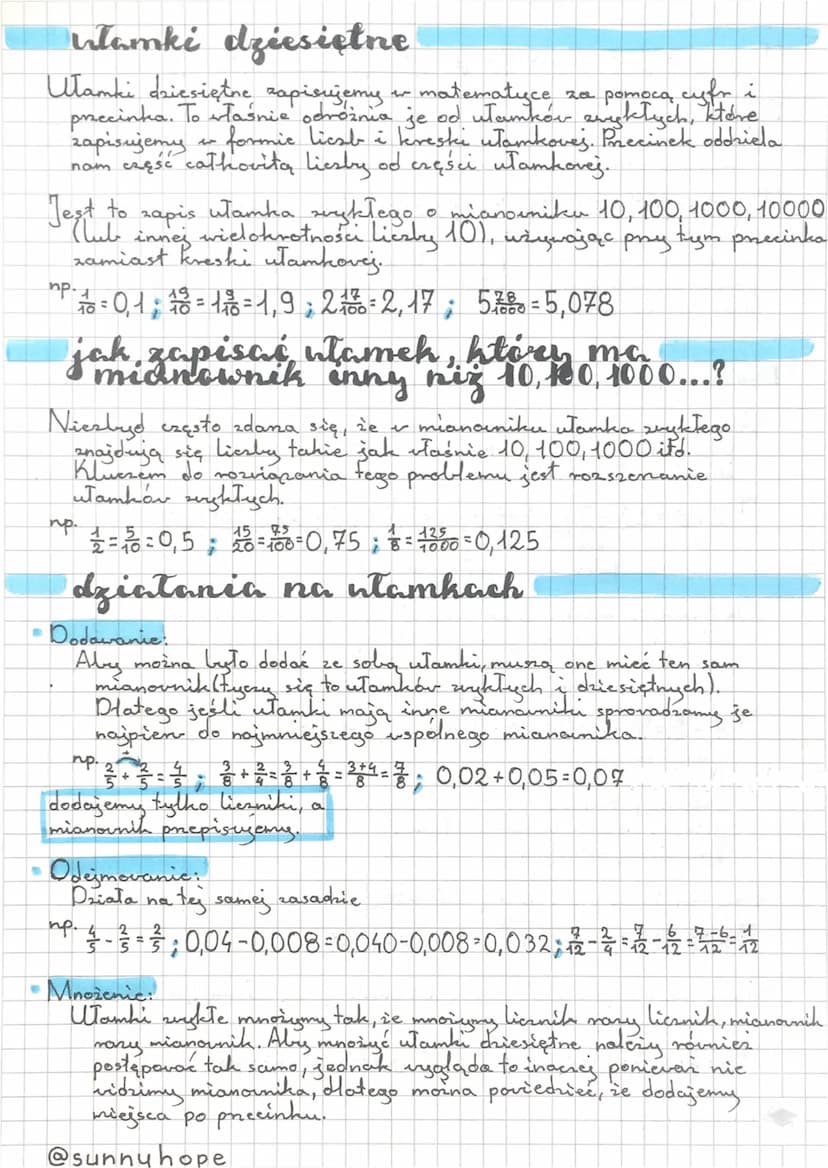 ułamki dziesiętne
Ułamki dziesiętne zapisujemy w matematyce za pomocą cyfr i
przecinka. To właśnie odróżnia je od ułamków zwykłych, które
zapisujemy w formie liczb i kreski ułamkowej. Przecinek oddziela
nam część całkowitą liczby od części ułamkowej.
Jest to zapis ułamka zwykłego o mianowniku 10, 100, 1000, 10000
(lub innej wielokrotności liczby 10), używając przy tym przecinka
zamiast kreski ułamkowej.
np. 1/10 = 0,1 ; 19/10 = 1 9/10 = 1,9 ; 2 17/100 = 2,17 ; 5 78/1000 = 5,078
jak zapisać ułamek, który ma
mianownik inny niż 10, 100, 1000...?
Niezbyt często zdarza się, że w mianowniku ułamka zwykłego
znajdują się liczby takie jak właśnie 10, 100, 1000 itd.
Kluczem do rozwiązania tego problemu jest rozszerzanie
ułamków zwykłych.
np. 1/2 = 5/10 = 0,5 ; 15/20 = 75/100 = 0,75 ; 1/8 = 125/1000 = 0,125
działania na ułamkach
Dodawanie:
Aby można było dodać ze sobą ułamki, muszą one mieć ten sam
mianownik (tyczy się to ułamków zwykłych i dziesiętnych).
Dlatego jeśli ułamki mają inne mianowniki sprowadzamy je
najpierw do najmniejszego wspólnego mianownika.
np. 2/5 + 2/5 = 4/5 ; 3/8 + 2/4 = 3/8 + 4/8 = 3+4/8 = 7/8 ; 0,02 + 0,05 = 0,07
dodajemy tylko liczniki, a
mianownik przepisujemy.
Odejmowanie:
Działa na tej samej zasadzie
np. 4/5 - 2/5 = 2/5 ; 0,04 - 0,008 = 0,040 - 0,008 = 0,032 ; 7/12 - 2/4 = 7/12 - 6/12 = 7-6/12 = 1/12
Mnożenie:
Ułamki zwykłe mnożymy tak, że mnożymy licznik razy licznik, mianownik
razy mianownik. Aby mnożyć ułamki dziesiętne należy również
postępować tak samo, jednak wygląda to inaczej ponieważ nie
widzimy mianownika, dlatego można powiedzieć, że dodajemy
miejsca po przecinku.
@sunnyhope